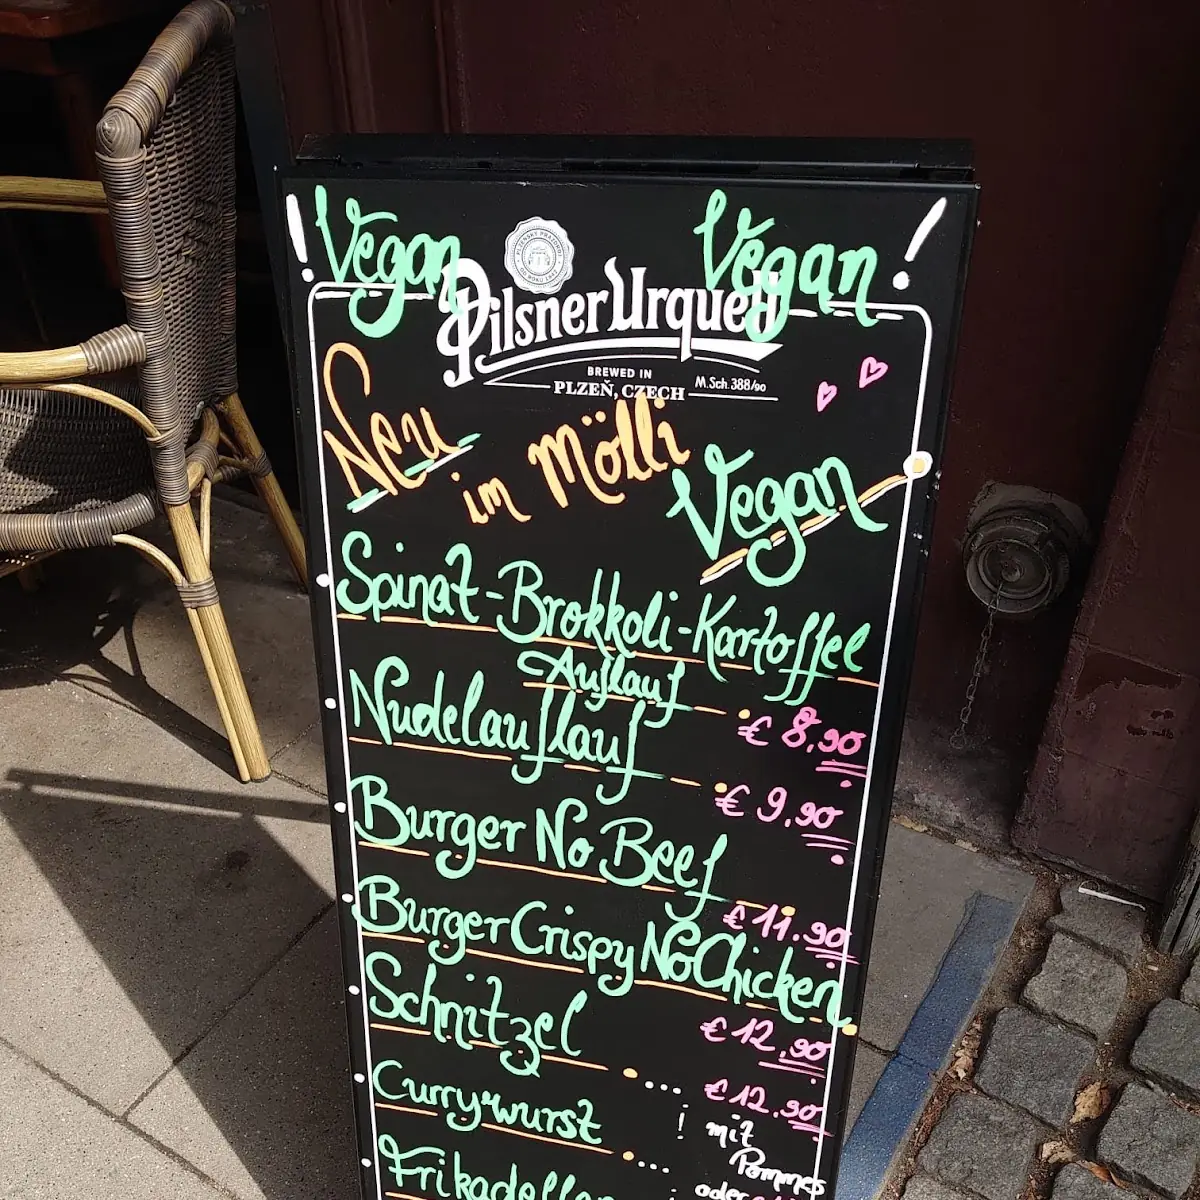 ! Vegan Vegan !
PLZEŇSKÝ PRAZDROJ
OD ROKU 1842
Pilsner Urquell
BREWED IN
PLZEŇ, CZECH M.Sch. 388/90
Neu im Mölli
Vegan
Spinat-Brokkoli-Kartoffel
Auflauf
€ 8,90
Nudelauflauf
€ 9,90
Burger No Beef
€ 11.90
Burger Crispy No Chicken
€ 12,90
Schnitzel ....
€ 12.90
Currywurst ! mit
Pommes
...
Frikadellen oder